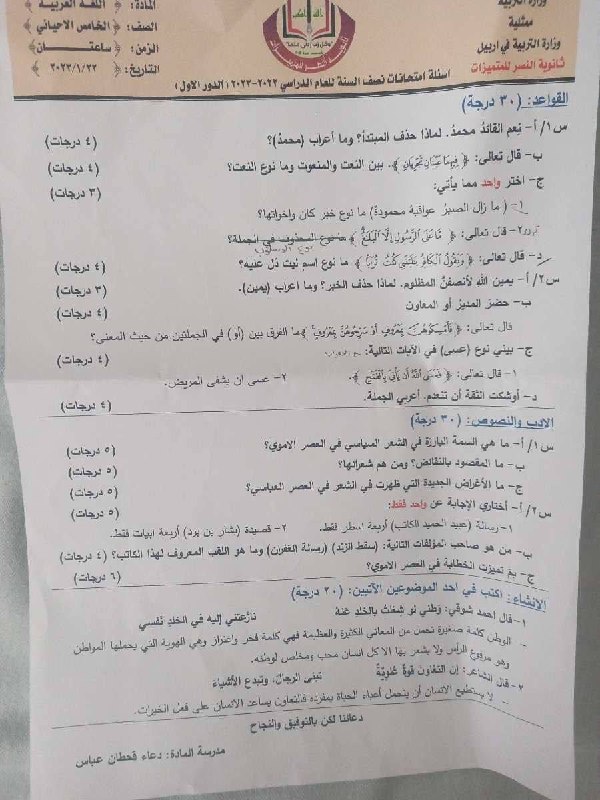 وزارة التربية
ممثلية
وزارة التربية في اربيل
ثانوية النسر للمتميزات
المادة: ﴿ اللغة العربية ﴾
الصف: ﴿ الخامس الاحيائي ﴾
الزمن: ﴿ ساعتــــان ﴾
التاريخ: ﴿ ٢٠٢٣/١/٢٢ ﴾
اسئلة امتحانات نصف السنة للعام الدراسي ٢٠٢٢-٢٠٢٣ (الدور الاول)
القواعد: (٣٠ درجة)
س١/ أ- نِعم القائدُ محمدُ. لماذا حذف المبتدأ؟ وما أعراب (محمدُ)؟ (٤ درجات)
ب- قال تعالى: ﴿ فِيهِمَا عَيْنَانِ تَجْرِيَانِ ﴾. بين النعت والمنعوت وما نوع النعت؟ (٤ درجات)
ج- اختر واحد مما يأتي: (٣ درجات)
١- ( ما زال الصبرُ عواقبهُ محمودةٌ) ما نوع خبر كان واخواتها؟
٢- قال تعالى: ﴿ مَّا عَلَى الرَّسُولِ إِلَّا الْبَلَاغُ ﴾ الجملة؟
د- قال تعالى: ﴿ وَيَقُولُ الْكَافِرُ يَا لَيْتَنِي كُنتُ تُرَابًا ﴾ ما نوع اسم ليت دل عليه؟ (٤ درجات)
س٢/ أ- يمين اللهِ لأنصفنَّ المظلوم. لماذا حذف الخبر؟ وما اعراب (يمين). (٣ درجات)
ب- حضرَ المديرُ أو المعاون (٤ درجات)
قال تعالى: ﴿ فَأَمْسِكُوهُنَّ بِمَعْرُوفٍ أَوْ سَرِّحُوهُنَّ بِمَعْرُوفٍ ﴾ ما الفرق بين (أو) في الجملتين من حيث المعنى؟
ج- بيني نوع (عسى) في الآيات التالية: (٤ درجات)
١- قال تعالى: ﴿ فَعَسَى اللَّهُ أَن يَأْتِيَ بِالْفَتْحِ ﴾. ٢- عسى أن يشفى المريض.
د- أوشكت الثقة أن تنعدم. أعربي الجملة. (٤ درجات)
الادب والنصوص: (٣٠ درجة)
س١/ أ- ما هي السمة البارزة في الشعر السياسي في العصر الاموي؟ (٥ درجات)
ب- ما المقصود بالنقائض؟ ومن هم شعرائها؟ (٥ درجات)
ج- ما الأغراض الجديدة التي ظهرت في الشعر في العصر العباسي؟ (٥ درجات)
س٢/ أ- أختاري الإجابة عن واحد فقط: (٥ درجات)
١- رسالة (عبد الحميد الكاتب) أربعة اسطر فقط. ٢- قصيدة (بشار بن برد) أربعة ابيات فقط.
ب- من هو صاحب المؤلفات التالية: (سقط الزند) (رسالة الغفرن) وما هو اللقب المعروف لهذا الكاتب؟ (٤ درجات)
ج- بمَ تميزت الخطابة في العصر الاموي؟ (٦ درجات)
الإنشاء: اكتب في احد الموضوعين الآتيين: (٣٠ درجة)
١- قال احمد شوقي: وَطَني لو شُغلتُ بالخلدِ عَنهُ نازَعتني إليه في الخلدِ نَفْسي
- الوطن كلمة صغيرة تحمل من المعاني الكثيرة والعظيمة فهي كلمة فخر واعتزاز وهي الهوية التي يحملها المواطن
وهو مرفوع الرأس ولا يشعر بها الا كل انسان محب ومخلص لوطنه.
٢- قال الشاعر: إن التعاون قوةٌ عُلويّةٌ تبني الرجال، وتبدع الأشياء
- لا يستطيع الانسان أن يتحمل أعباء الحياة بمفرده فالتعاون يساعد الانسان على فعل الخيرات.
دعائنا لكن بالتوفيق والنجاح
مدرسة المادة: دعاء قحطان عباس